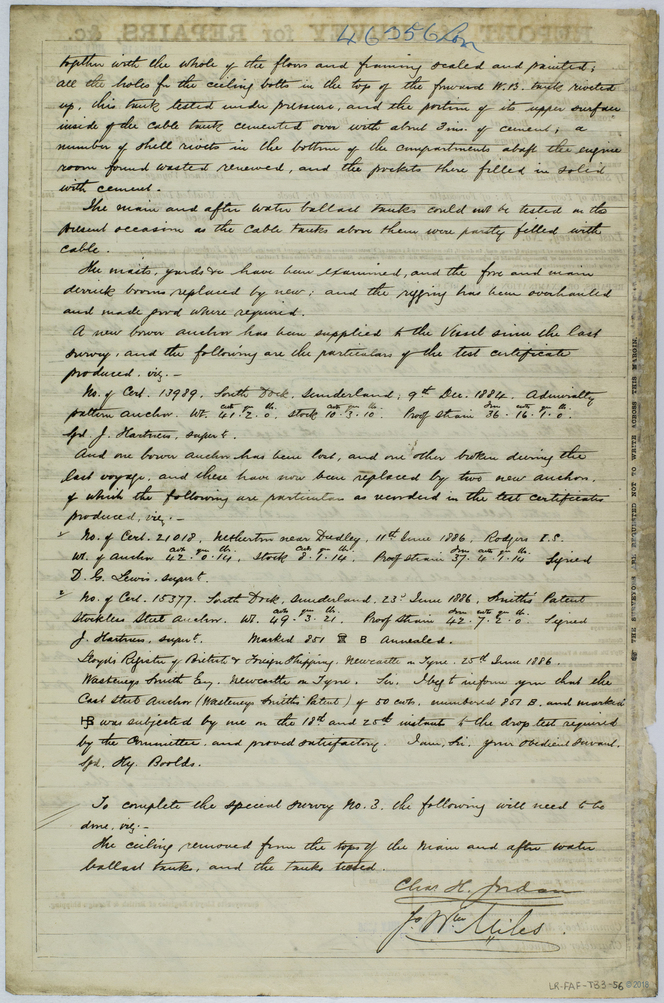 46356 Lon
together with the whole of the floors and framing scaled and painted;
all the holes for the ceiling bolts in the top of the forward W.B. tank riveted
up, this tank tested under pressure, and the portion of its upper surface
inside of the cable tank cemented over with about 3 ins. of cement; a
number of shell rivets in the bottom of the compartments abaft the engine
room found wasted renewed, and the pockets there filled in solid
with cement.
The main and after water ballast tanks could not be tested on this
present occasion as the cable tanks above them were partly filled with
cable.
The masts, yards &c have been examined, and the fore and main
derrick booms replaced by new; and the rigging has been overhauled
and made good where required.
A new bower anchor has been supplied to the Vessel since the last
survey, and the following are the particulars of the test certificate
produced. viz. -
No. of Cert. 13989. South Dock, Sunderland; 9th Dec. 1884. Admiralty
pattern anchor. Wt. 41 cwts. 2 qrs. 0 lbs. stock 10 cwts. 3 qrs. 10 lbs. Proof Strain 36 tons 16 cwts. 1 qr. 0 lbs.
Sgd J. Hartness, supert.
And one bower anchor has been lost, and one other broken during the
last voyage, and these have now been replaced by two new anchors,
of which the following are particulars as recorded in the test certificates
produced, viz. -
1 No. of Cert. 21018, Netherton near Dudley, 11th June 1886, Rodgers
Wt. of anchor 42 cwts. 0 qrs. 14 lbs. Stock 8 cwts. 1 qr. 14 lbs. Proof strain 37 tons 4 cwts. 1 qr. 14 lbs. Signed
D. G. Lewis, supert.
2 No. of Cert. 15377. South Dock, Sunderland, 23rd June 1886, Smith's Patent
stockless Steel Anchor. Wt. 49 cwts. 3 qrs. 21 lbs. Proof Strain 42 tons 7 cwts. 2 qrs. 0 lbs. Signed
J. Hartness, supert. Marked 851 B Annealed.
Lloyds Register of British & Foreign Shipping. Newcastle on Tyne. 25th June 1886.
Wasteneys Smith Esq. Newcastle on Tyne. Sir. I beg to inform you that the
Cast Steel Anchor (Wasteneys Smith's Patent) of 50 cwts. numbered 851 B. and marked
HB was subjected by me on the 18th and 25th instants to the drop test required
by the Committee, and proved satisfactory. I am, Sir, your obedient servant.
Sgd. Hy. Boolds.
To complete the special survey No. 3. the following will need to be
done, viz. -
The ceiling removed from the tops of the Main and after water
ballast tanks, and the tanks tested.
Chas H. Jordan
Js Wm Miles
THE SURVEYORS ARE REQUESTED NOT TO WRITE ACROSS THIS MARGIN.
LR-FAF-T33-56 ©2018